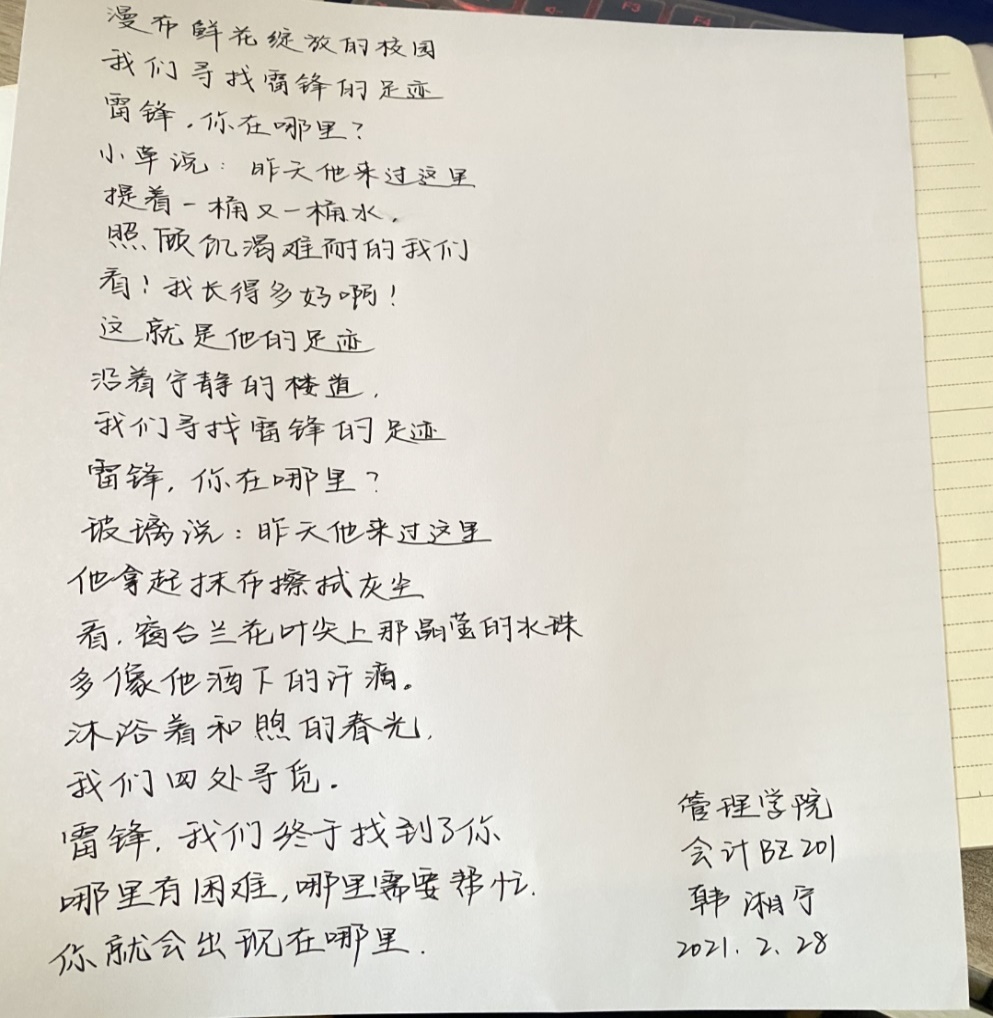 漫布鲜花绽放的校园
我们寻找雷锋的足迹
雷锋,你在哪里?
小草说:昨天他来过这里
提着一桶又一桶水,
照顾饥渴难耐的我们
看!我长得多好啊!
这就是他的足迹
沿着宁静的楼道,
我们寻找雷锋的足迹
雷锋,你在哪里?
玻璃说:昨天他来过这里
他拿起抹布擦拭灰尘
看,窗台兰花叶尖上那晶莹的水珠
多像他洒下的汗滴。
沐浴着和煦的春光,
我们四处寻觅。
雷锋,我们终于找到了你
哪里有困难,哪里需要帮忙.
你就会出现在哪里.
管理学院
会计BZ201
韩湘宁
2021.2.28
F3
F4